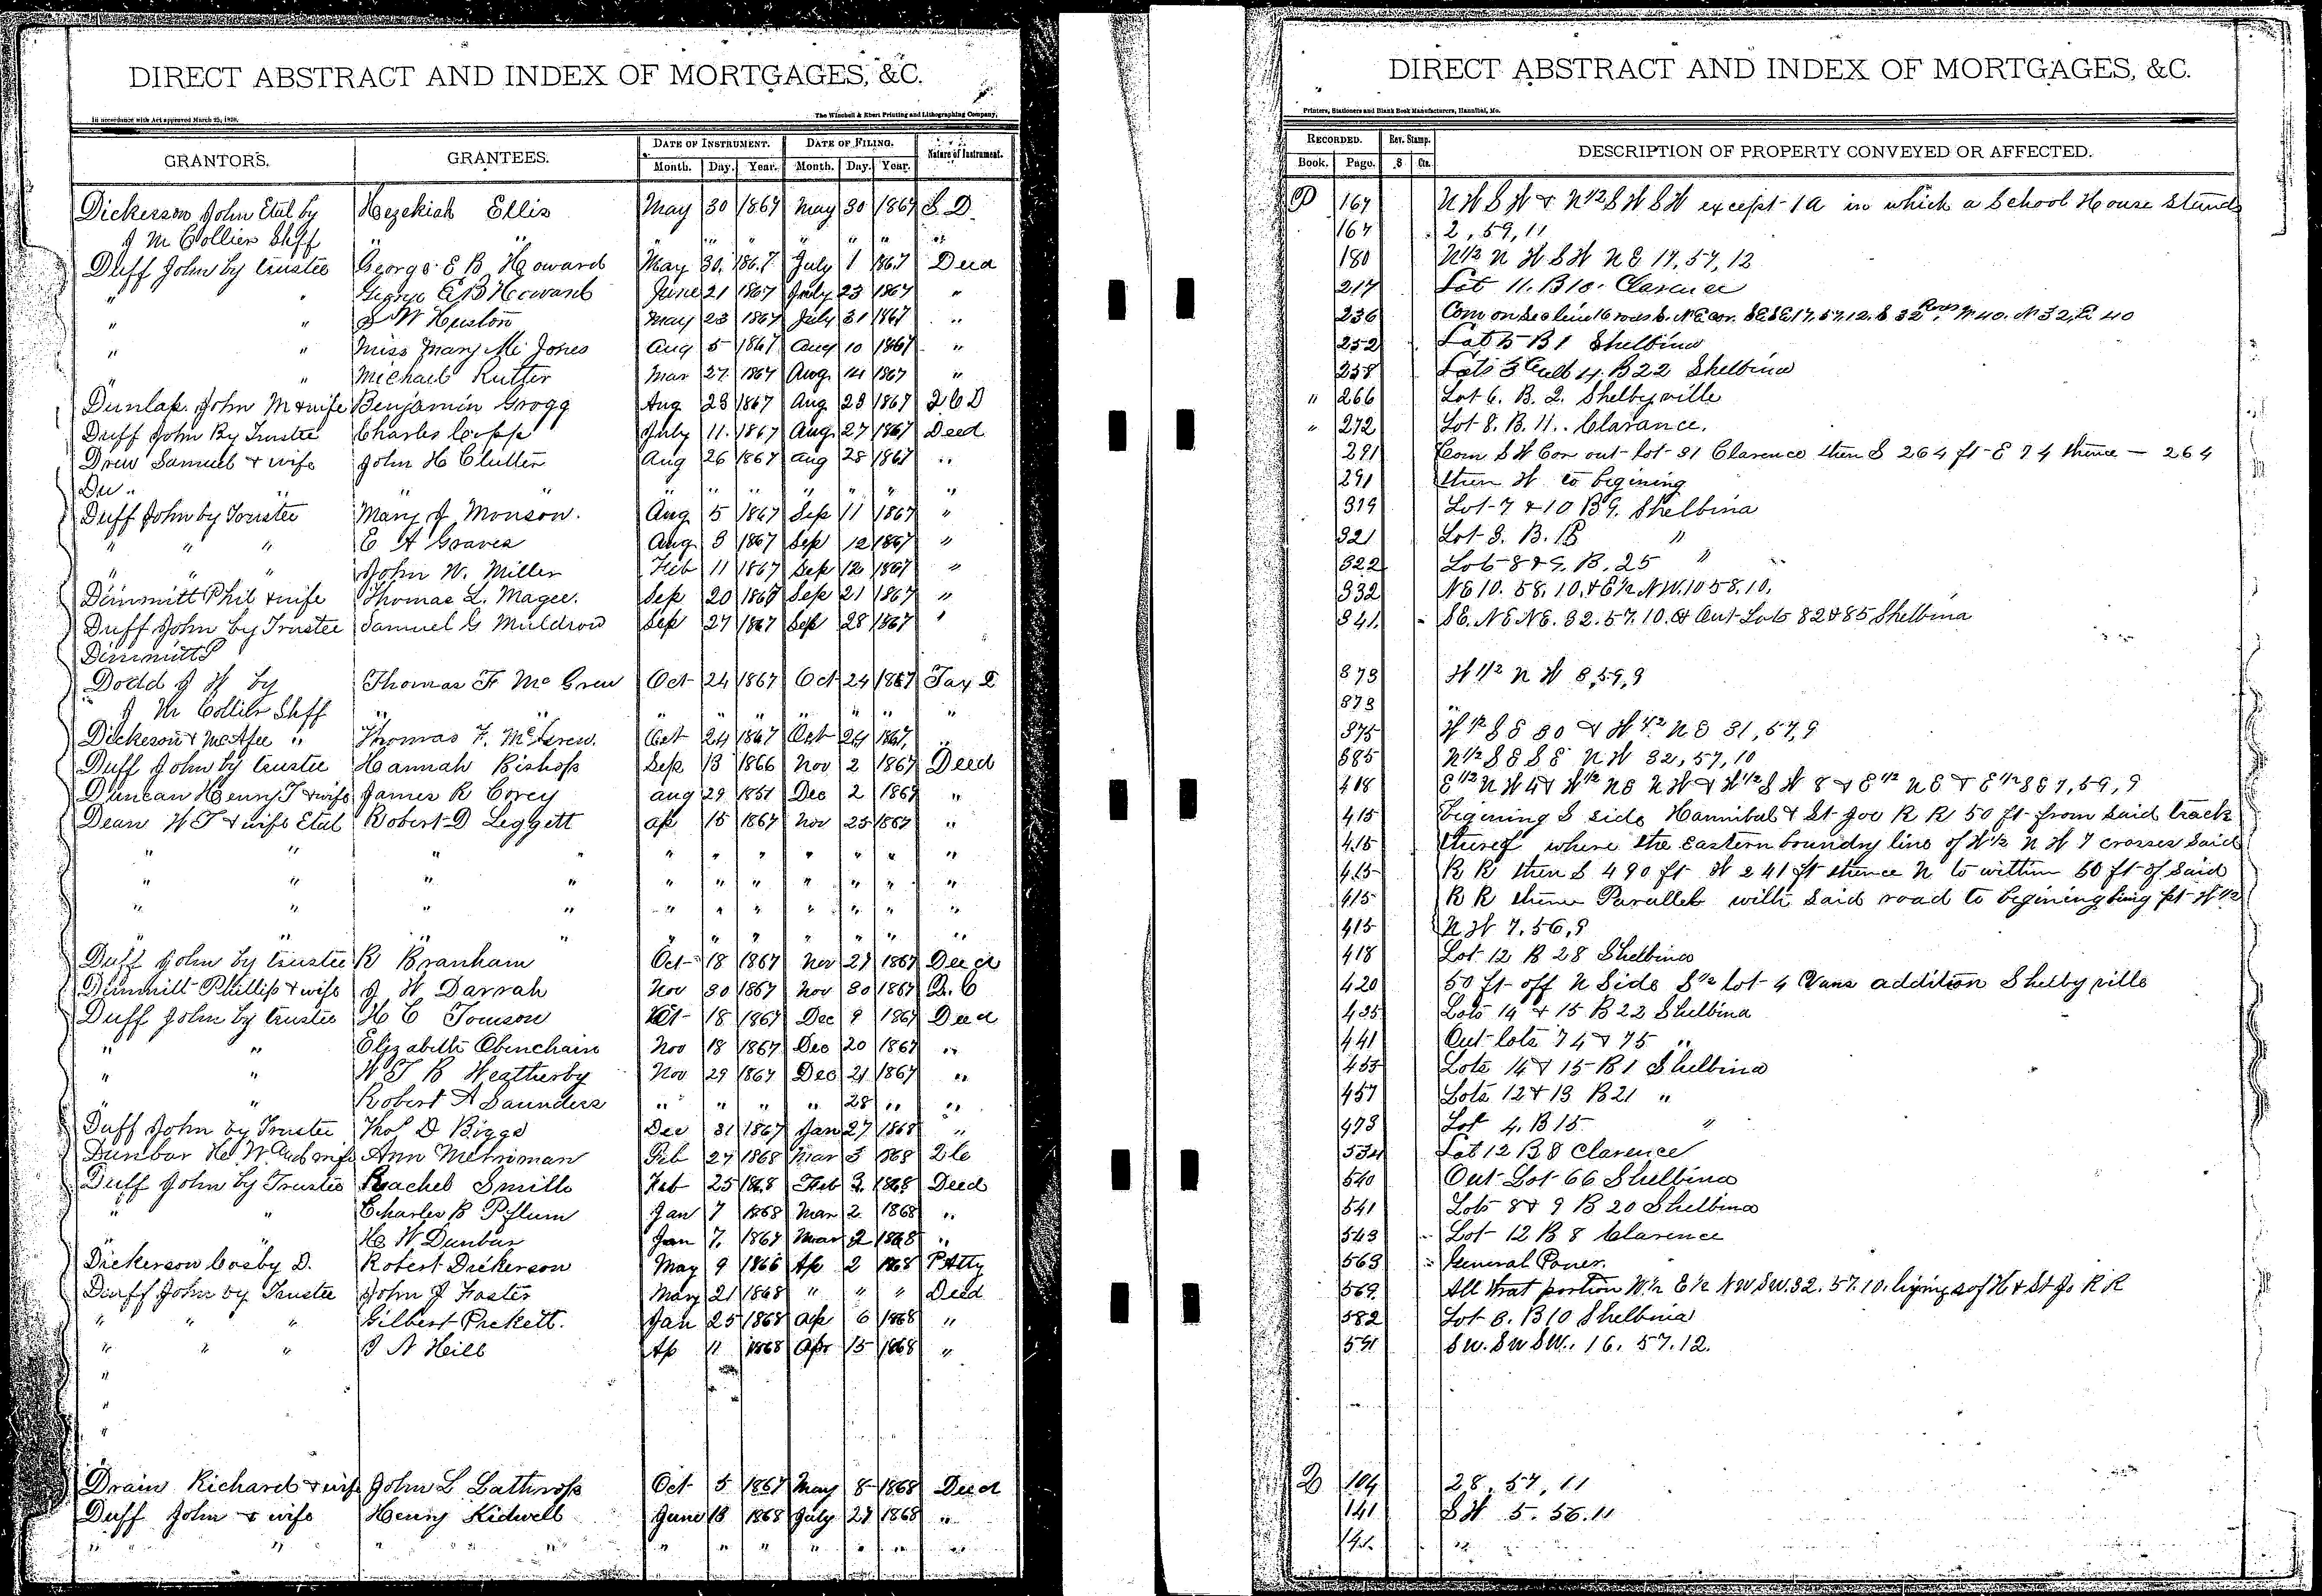 DIRECT ABSTRACT AND INDEX OF MORTGAGES, &C.
In accordance with Act approved March 25, 1870.
The Winchell & Ebert Printing and Lithographing Company,
GRANTORS. GRANTEES. DATE OF INSTRUMENT. DATE OF FILING. Nature of Instrument.
Month. Day. Year. Month. Day. Year.
Dickerson John Etal by Hezekiah Ellis May 30 1867 May 30 1867 S. D.
J M Collier Shff " " " " " " " " "
Duff John by trustee George E B Howard May 30 1867 July 1 1867 Deed
" " George E B Howard June 21 1867 July 23 1867 "
" " S W Huston May 23 1867 July 31 1867 "
" " Miss Mary Mc Jones Aug 5 1867 Aug 10 1867 "
" " Michael Rutter Mar 27 1867 Aug 14 1867 "
Dunlap John M & wife Benjamin Grogg Aug 23 1867 Aug 23 1867 2 C D
Duff John By Trustee Charles Copp July 11 1867 Aug 27 1867 Deed
Drew Samuel & wife John H Clutter Aug 26 1867 Aug 28 1867 "
Du " " " " " " " " " " "
Duff John by Trustee Mary J Monson. Aug 5 1867 Sep 11 1867 "
" " " E A Graves Aug 3 1867 Sep 12 1867 "
" " " John W. Miller Feb 11 1867 Sep 12 1867 "
Dimmitt Phil & wife Thomas L. Magee. Sep 20 1867 Sep 21 1867 "
Duff John by Trustee Samuel G Muldrow Sep 27 1867 Sep 28 1867 "
Dimmitt P
Dodd J W by Thomas F McGrew Oct 24 1867 Oct 24 1867 Tax D
J M Collier Shff " " " " " " " " "
Dickerson & McAfee " Thomas F. McGrew. Oct 24 1867 Oct 24 1867 "
Duff John by trustee Hannah Bishop Sep 13 1866 Nov 2 1867 Deed
Duncan Henry T & wife James R Corey Aug 29 1851 Dec 2 1867 "
Dean W T & wife Etal Robert D Leggett Ap 15 1867 Nov 25 1867 "
" " " " " " " " " " "
" " " " " " " " " " "
" " " " " " " " " " "
" " " " " " " " " " "
Duff John by trustee R Branham Oct 18 1867 Nov 27 1867 Deed
Dimmitt Phillip & wife J W Darrah Nov 30 1867 Nov 30 1867 Q. C
Duff John by trustee H C Tomson Oct 18 1867 Dec 9 1867 Deed
" " Elizabeth Obenchain Nov 18 1867 Dec 20 1867 "
" " W T B Weatherby Nov 29 1867 Dec 21 1867 "
" " Robert A Saunders " " " " 28 " "
Duff John by Trustee Thos D Biggs Dec 31 1867 Jan 27 1868 "
Dunbar H W And wife Ann Merriman Feb 27 1868 Mar 3 1868 2 C
Duff John by Trustee Rachel Smith Feb 25 1868 Feb 3 1868 Deed
" " Charles B Pflum Jan 7 1868 Mar 2 1868 "
" " H W Dunbar Jan 7 1867 Mar 2 1868 "
Dickerson Cosby D. Robert Dickerson May 9 1866 Ap 2 1868 P Atty
Duff John by Trustee John J Foster Mary 21 1868 " " " Deed
" " " Gilbert Prckett. Jan 25 1868 Ap 6 1868 "
" " " J A Hill Ap 11 1868 Apr 15 1868 "
"
"
"
Drain Richard & wife John L Lathrop Oct 5 1867 May 8 1868 Deed
Duff John & wife Henry Kidwell June 13 1868 July 27 1868 "
" " " " " " " " " " " "
DIRECT ABSTRACT AND INDEX OF MORTGAGES, &C.
Printers, Stationers and Blank Book Manufacturers, Hannibal, Mo.
RECORDED. Rev. Stamp. DESCRIPTION OF PROPERTY CONVEYED OR AFFECTED.
Book. Page. $ Cts.
P 167 N W S W & N 1/2 S W S W except 1 a in which a School House Stands
167 2, 59, 11
180 N 1/2 N W S W N E 17, 57, 12
217 Lot 11. B 10. Clarence
236 Com on Sec line 16 rods S. NE cor. SE SE 17, 57, 12. S 32 Rods, W 40. N 32, E 40
252 Lot 5 B 1 Shelbina
258 Lots 3 And 4. B 22 Shelbina
" 266 Lot 6. B. 2. Shelbyville
" 272 Lot 8. B. 11. Clarance.
291 Com S W Cor out lot 31 Clarence then S 264 ft E 74 thence — 264
291 then W to begining
319 Lot 7 & 10 B 9. Shelbina
321 Lot 3. B. 18 "
322 Lots 8 & 9. B. 25 "
332 NE 10. 58. 10. & E 1/2 NW. 10 58. 10.
341. SE. NE NE. 32. 57. 10. & Out Lots 82 & 85 Shelbina
373 W 1/2 N W 8, 59, 9
373 "
375 W 1/2 S E 30 & W 1/2 N E 31, 57, 9
385 N 1/2 S E S E N W 32, 57, 10
408 E 1/2 N W & W 1/2 N E N W & W 1/2 S W 8 & E 1/2 N E & E 1/2 S E 7, 59, 9
415 Begining S side Hannibal & St Joe R R 50 ft from said track
415 thereof where the Eastern boundry line of W 1/2 N W 7 crosses said
415 R R then S 490 ft W 241 ft thence N to within 50 ft of said
415 R R thence Parallel with said road to begining being pt W 1/2
415 N W 7, 56, 9
418 Lot 12 B 28 Shelbina
420 50 ft off N Side S 1/2 lot 4 Vans addition Shelbyville
435 Lots 14 & 15 B 22 Shelbina
441 Out lots 74 & 75 "
455 Lots 14 & 15 B 1 Shelbina
457 Lots 12 & 13 B 21 "
473 Lot 4. B 15 "
534 Lot 12 B 8 Clarence
540 Out Lot 66 Shelbina
541 Lots 8 & 9 B 20 Shelbina
543 Lot 12 B 8 Clarence
563 General Power.
569. All that portion W 1/2 E 1/2 NW SW. 32. 57. 10. lying S of H & St Jo R R
582 Lot 8. B 10 Shelbina
591 SW. SW SW.. 16. 57. 12.
Q 104 28, 57, 11
141 S W 5. 56. 11
141 "